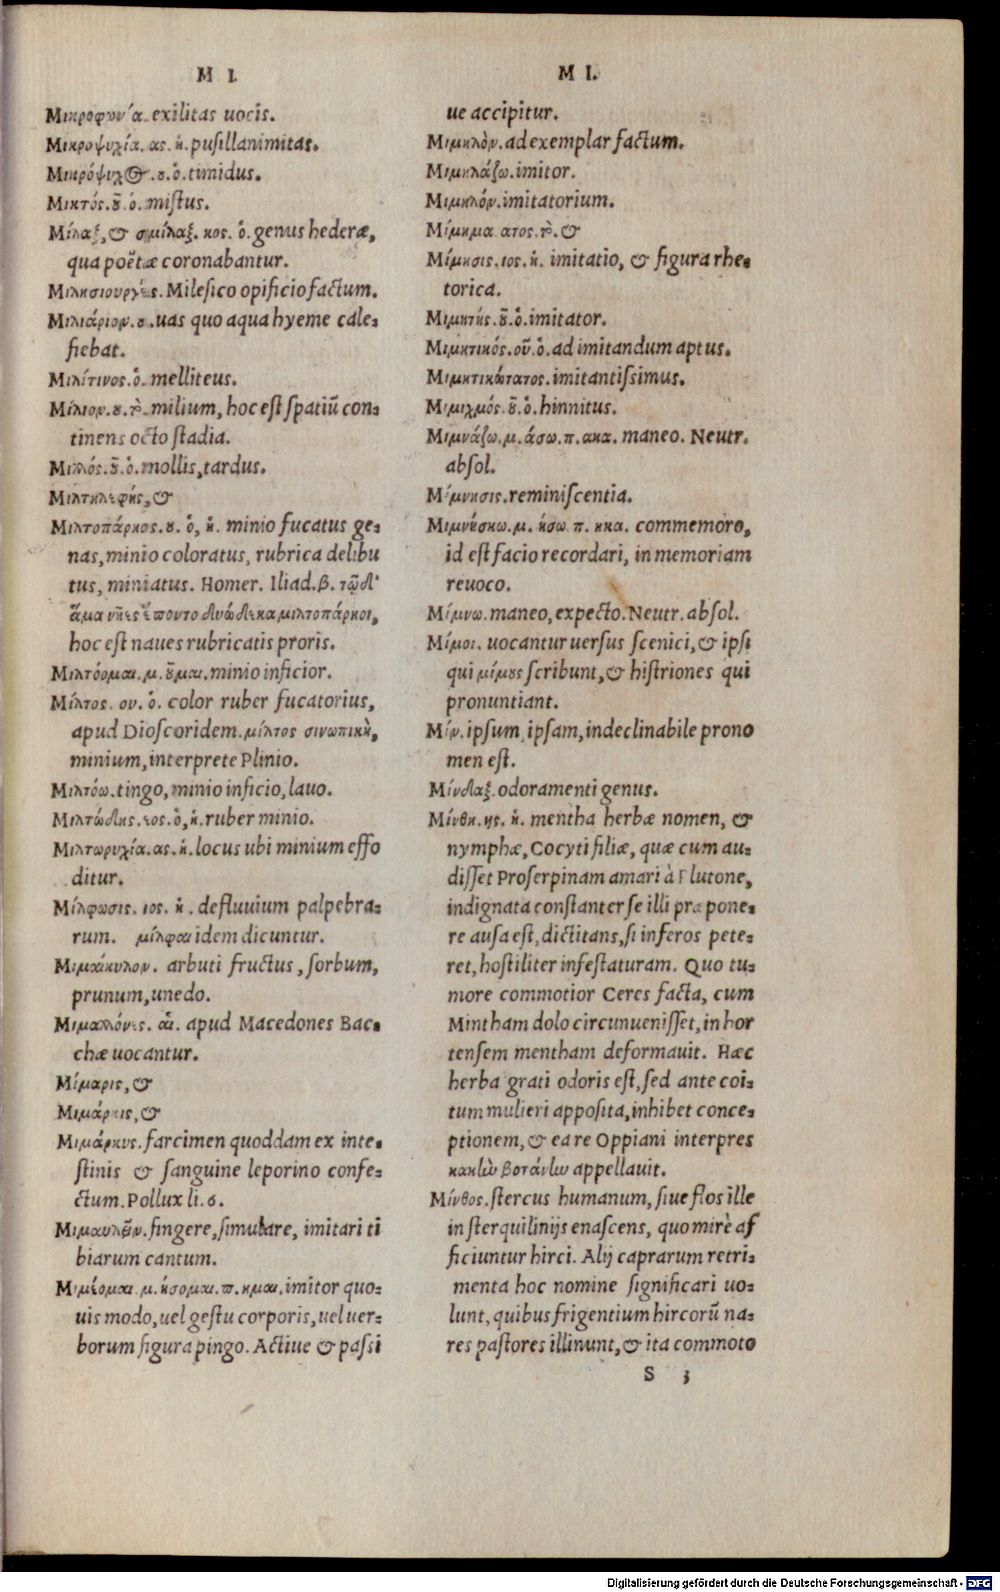 M I.
Μικροφωνία. exilitas uocis.
Μικροψυχία. ας. ἡ. pusillanimitas.
Μικρόψυχος. ου. ὁ. timidus.
Μικτός. οῦ. ὁ. mistus.
Μίλαξ, & σμίλαξ. κος. ὁ. genus hederæ,
qua poëtæ coronabantur.
Μιλησιουργές. Milesico opificio factum.
Μιλιάριον. ου. uas quo aqua hyeme cale-
fiebat.
Μιλίτινος. ὁ. melliteus.
Μίλιον. ου. τὸ. milium, hoc est spatiũ con-
tinens octo stadia.
Μιλλός. οῦ. ὁ. mollis, tardus.
Μιλτηλιφής, &
Μιλτοπάρῃος. ου. ὁ, ἡ. minio fucatus ge-
nas, minio coloratus, rubrica delibu
tus, miniatus. Homer. Iliad. β. τῷ δ'
ἅμα νῆες ἕποντο δυώδεκα μιλτοπάρῃοι,
hoc est naues rubricatis proris.
Μιλτόομαι. μ. οῦμαι. minio inficior.
Μίλτος. ου. ὁ. color ruber fucatorius,
apud Dioscoridem. μίλτος σινωπικὴ,
minium, interprete Plinio.
Μιλτόω. tingo, minio inficio, lauo.
Μιλτώδης. εος. ὁ, ἡ. ruber minio.
Μιλτωρυχία. ας. ἡ. locus ubi minium effo
ditur.
Μίλφωσις. ιος. ἡ. defluuium palpebra-
rum. μίλφαι idem dicuntur.
Μιμαίκυλον. arbuti fructus, sorbum,
prunum, unedo.
Μιμαλλόνες. αἱ. apud Macedones Bac-
chæ uocantur.
Μίμαρις, &
Μιμάρκις, &
Μιμάρκυς. farcimen quoddam ex inte-
stinis & sanguine leporino confe-
ctum. Pollux li. 6.
Μιμαυλεῖν. fingere, simulare, imitari ti
biarum cantum.
Μιμέομαι. μ. ήσομαι. π. ημαι. imitor quo-
uis modo, uel gestu corporis, uel uer-
borum figura pingo. Actiue & passi
M I.
ue accipitur.
Μιμηλὸν. ad exemplar factum.
Μιμηλάζω. imitor.
Μιμηλόν. imitatorium.
Μίμημα ατος. τὸ. &
Μίμησις. ιος. ἡ. imitatio, & figura rhe-
torica.
Μιμητής. οῦ. ὁ. imitator.
Μιμητικός. οῦ. ὁ. ad imitandum aptus.
Μιμητικώτατος. imitantissimus.
Μιμιχμός. οῦ. ὁ. hinnitus.
Μιμνάζω. μ. άσω. π. ακα. maneo. Neutr.
absol.
Μίμνησις. reminiscentia.
Μιμνήσκω. μ. ήσω. π. ηκα. commemoro,
id est facio recordari, in memoriam
reuoco.
Μίμνω. maneo, expecto. Neutr. absol.
Μίμοι. uocantur uersus scenici, & ipsi
qui μίμους scribunt, & histriones qui
pronuntiant.
Μίν. ipsum, ipsam, indeclinabile prono
men est.
Μίνδαξ. odoramenti genus.
Μίνθη. ης. ἡ. mentha herbæ nomen, &
nymphæ, Cocyti filiæ, quæ cum au-
disset Proserpinam amari à Plutone,
indignata constanter se illi præpone-
re ausa est, dictitans, si inferos pete-
ret, hostiliter infestaturam. Quo tu-
more commotior Ceres facta, cum
Mintham dolo circunuenisset, in hor
tensem mentham deformauit. Hæc
herba grati odoris est, sed ante coi-
tum mulieri apposita, inhibet conce-
ptionem, & ea re Oppiani interpres
κακὴν βοτάνην appellauit.
Μίνθος. stercus humanum, siue flos ille
in sterquilinijs enascens, quo mirè af
ficiuntur hirci. Alij caprarum retri-
menta hoc nomine significari uo-
lunt, quibus frigentium hircorũ na-
res pastores illinunt, & ita commoto
S 3
Digitalisierung gefördert durch die Deutsche Forschungsgemeinschaft - DFG